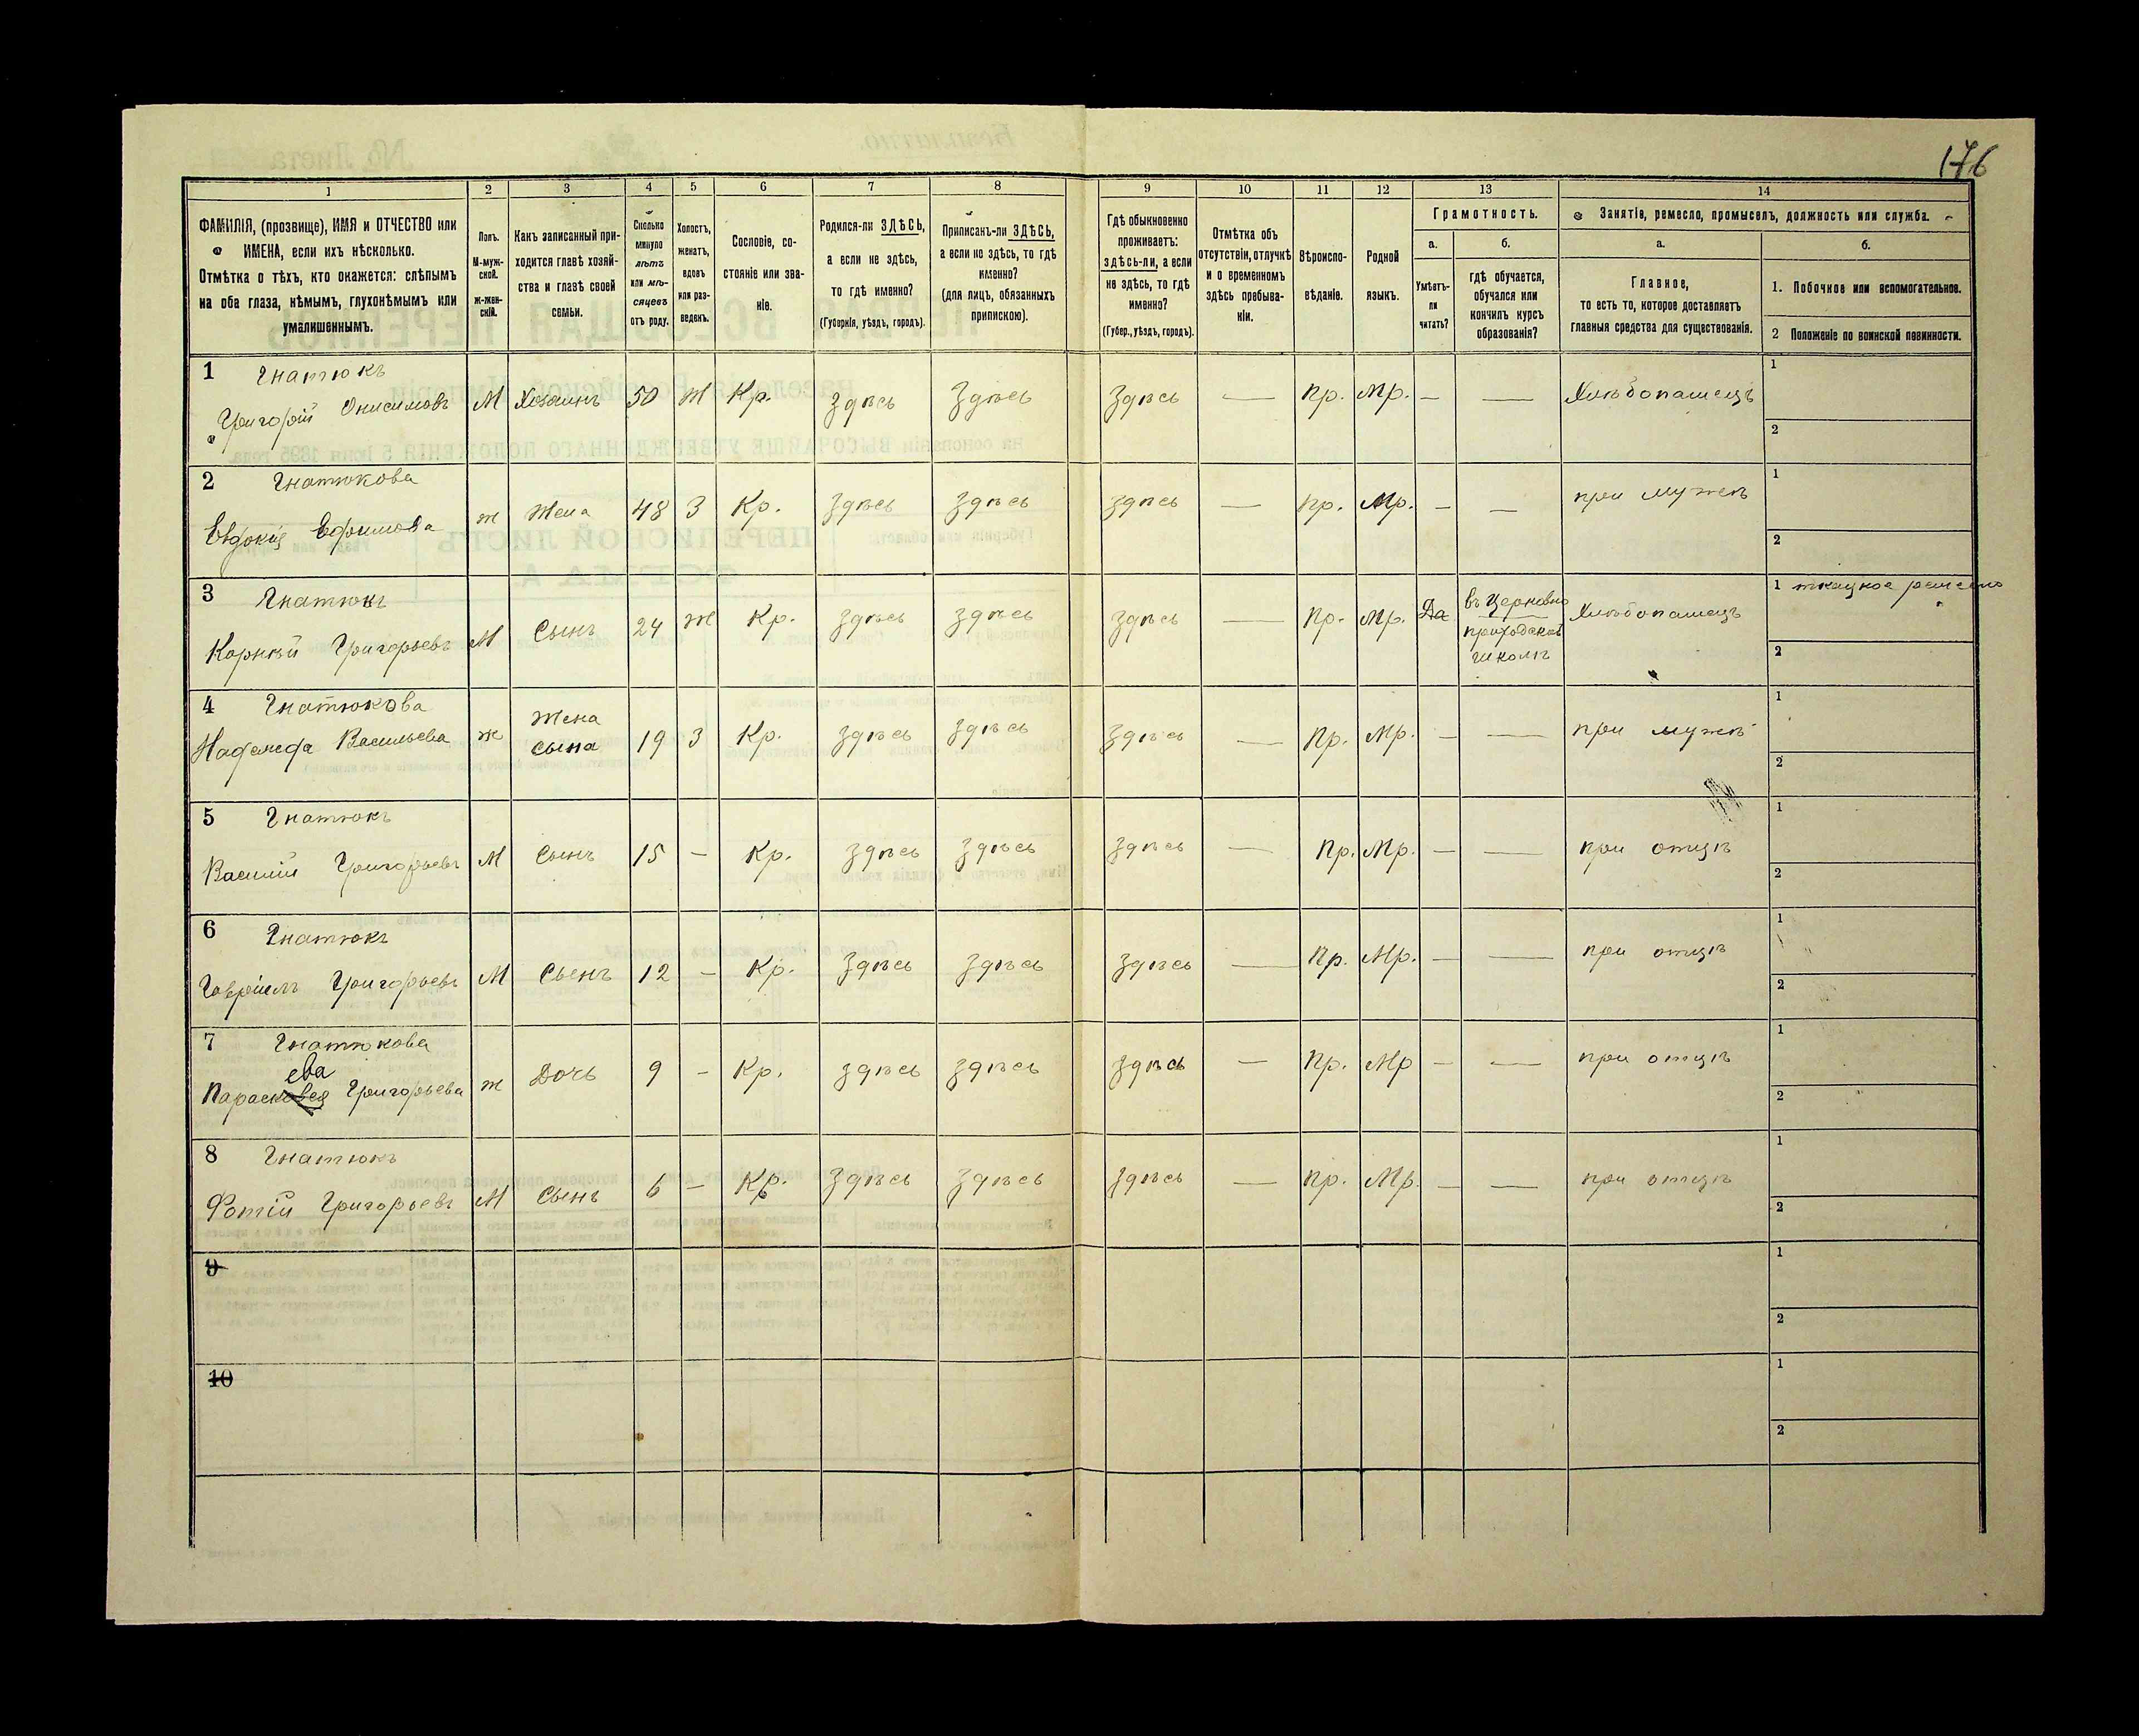 176
1 2 3 4 5 6 7 8 9 10 11 12 13 14
ФАМИЛІЯ, (прозвище), ИМЯ и ОТЧЕСТВО или
ИМЕНА, если ихъ нѣсколько.
Отмѣтка о тѣхъ, кто окажется: слѣпымъ
на оба глаза, нѣмымъ, глухонѣмымъ или
умалишеннымъ.
Полъ.
М-муж-
ской.
ж-жен-
скій.
Какъ записанный при-
ходится главѣ хозяй-
ства и главѣ своей
семьи.
Сколько
минуло
лѣтъ
или мѣ-
сяцевъ
отъ роду.
Холостъ,
женатъ,
вдовъ
или раз-
веденъ.
Сословіе, со-
стояніе или зва-
ніе.
Родился-ли ЗДѢСЬ,
а если не здѣсь,
то гдѣ именно?
(Губернія, уѣздъ, городъ).
Приписанъ-ли ЗДѢСЬ,
а если не здѣсь, то гдѣ
именно?
(для лицъ, обязанныхъ
припискою).
Гдѣ обыкновенно
проживаетъ:
здѣсь-ли, а если
не здѣсь, то гдѣ
именно?
(Губер., уѣздъ, городъ).
Отмѣтка объ
отсутствіи, отлучкѣ
и о временномъ
здѣсь пребыва-
ніи.
Вѣроиспо-
вѣданіе.
Родной
языкъ.
Грамотность.
а.
Умѣетъ-
ли
читать?
б.
гдѣ обучается,
обучался или
кончилъ курсъ
образованія?
Занятіе, ремесло, промыселъ, должность или служба.
а.
Главное,
то есть то, которое доставляетъ
главныя средства для существованія.
б.
1. Побочное или вспомогательное.
2 Положеніе по воинской повинности.
1 Гнатюкъ
Григорій Онисимовъ М Хозяинъ 50 Ж Кр. Здѣсь Здѣсь Здѣсь — Пр. Мр. — — Хлѣбопашецъ
1
2
2 Гнатюкова
Евдокія Ефимова ж Жена 48 З Кр. Здѣсь Здѣсь Здѣсь — Пр. Мр. — — при мужѣ
1
2
3 Гнатюкъ
Корнѣй Григорьевъ М Сынъ 24 Ж Кр. Здѣсь Здѣсь Здѣсь — Пр. Мр. Да въ Церковно
приходской
школѣ
Хлѣбопашецъ
1 ткацкое ремесло
2
4 Гнатюкова
Надежда Васильева ж Жена
сына
19 З Кр. здѣсь здѣсь здѣсь — Пр. Мр. — — при мужѣ
1
2
5 Гнатюкъ
Василій Григорьевъ М Сынъ 15 — Кр. Здѣсь Здѣсь Здѣсь — Пр. Мр. — — при отцѣ
1
2
6 Гнатюкъ
Гавріилъ Григорьевъ М Сынъ 12 — Кр. Здѣсь Здѣсь Здѣсь — Пр. Мр. — — при отцѣ
1
2
7 Гнатюкова
ева
Параскевея Григорьева ж Дочь 9 — Кр. здѣсь здѣсь здѣсь — Пр. Мр — — при отцѣ
1
2
8 Гнатюкъ
Фотій Григорьевъ М Сынъ 6 — Кр. Здѣсь Здѣсь Здѣсь — Пр. Мр. — — при отцѣ
1
2
9
1
2
10
1
2